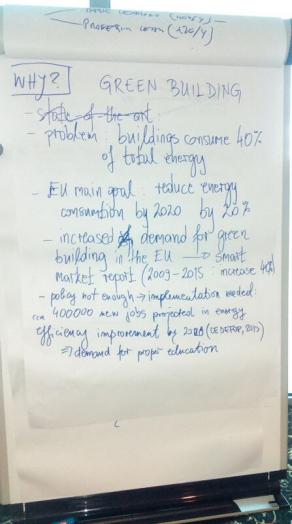 WHY?
GREEN BUILDING
- state-of-the-art
- problem : buildings consume 40%
of total energy
- EU main goal : reduce energy
consumption by 2020 by 20%
- increased demand for green
building in the EU → smart
market report (2009-2015 : increase
- policy not enough → implementation needed:
400000 new jobs projected in energy
efficiency improvement by
⇒ demand for proper education